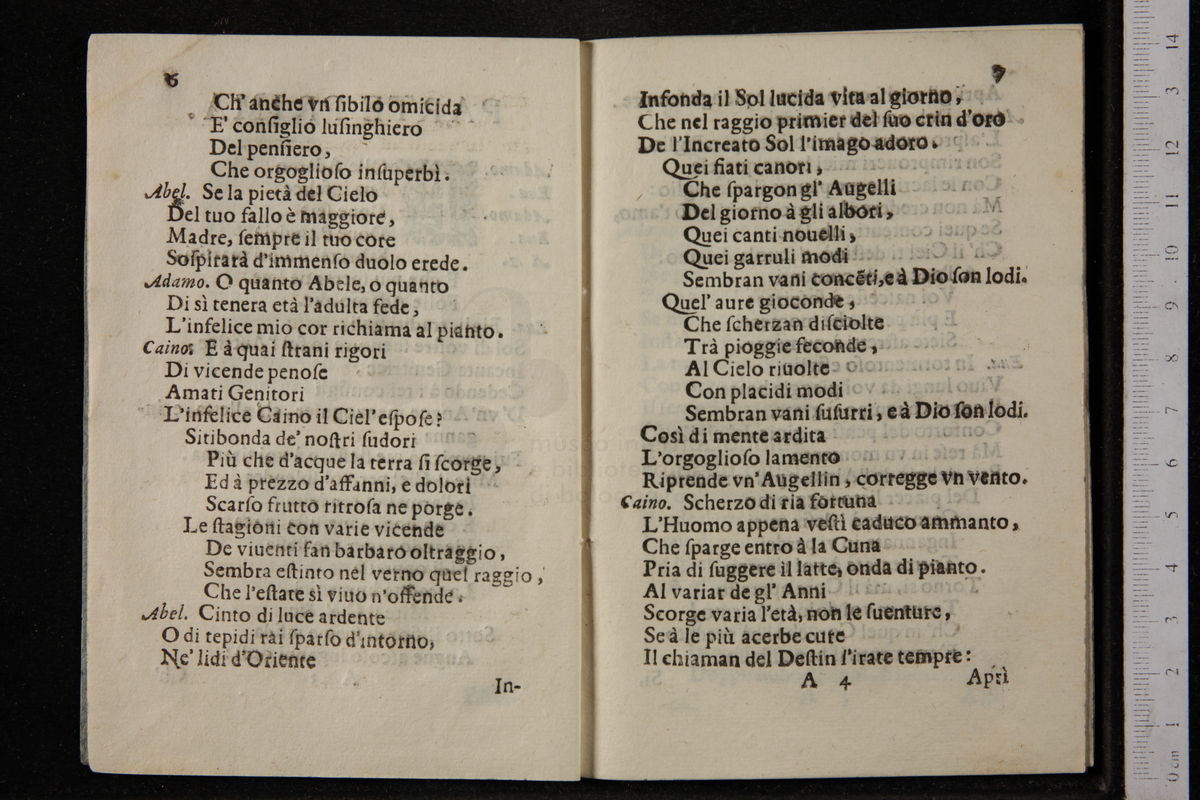 6
Ch' anche vn ſibilo omicida
E' conſiglio luſinghiero
Del penſiero,
Che orgoglioſo inſuperbì.
Abel. Se la pietà del Cielo
Del tuo fallo è maggiore,
Madre, ſempre il tuo core
Soſpirarà d'immenſo duolo erede.
Adamo. O quanto Abele, o quanto
Di sì tenera età l'adulta fede,
L'infelice mio cor richiama al pianto.
Caino. E à quai ſtrani rigori
Di vicende penoſe
Amati Genitori
L'infelice Caino il Ciel' eſpoſe?
Sitibonda de' noſtri ſudori
Più che d'acque la terra ſi ſcorge,
Ed à prezzo d'affanni, e dolori
Scarſo frutto ritroſa ne porge.
Le ſtagioni con varie vicende
De viuenti fan barbaro oltraggio,
Sembra eſtinto nel verno quel raggio,
Che l'eſtate sì viuo n'offende.
Abel. Cinto di luce ardente
O di tepidi rai ſparſo d'intorno,
Ne' lidi d'Oriente
In-
7
Infonda il Sol lucida vita al giorno,
Che nel raggio primier del ſuo crin d'oro
De l'Increato Sol l'imago adoro.
Quei fiati canori,
Che ſpargon gl' Augelli
Del giorno à gli albori,
Quei canti nouelli,
Quei garruli modi
Sembran vani concẽti, e à Dio ſon lodi.
Quel' aure gioconde,
Che ſcherzan diſciolte
Trà pioggie feconde,
Al Cielo riuolte
Con placidi modi
Sembran vani ſuſurri, e à Dio ſon lodi.
Così di mente ardita
L'orgoglioſo lamento
Riprende vn' Augellin, corregge vn vento.
Caino. Scherzo di ria fortuna
L'Huomo appena veſtì caduco ammanto,
Che ſparge entro à la Cuna
Pria di ſuggere il latte, onda di pianto.
Al variar de gl' Anni
Scorge varia l'età, non le ſuenture,
Se à le più acerbe cure
Il chiaman del Deſtin l'irate tempre:
A 4
Aprì